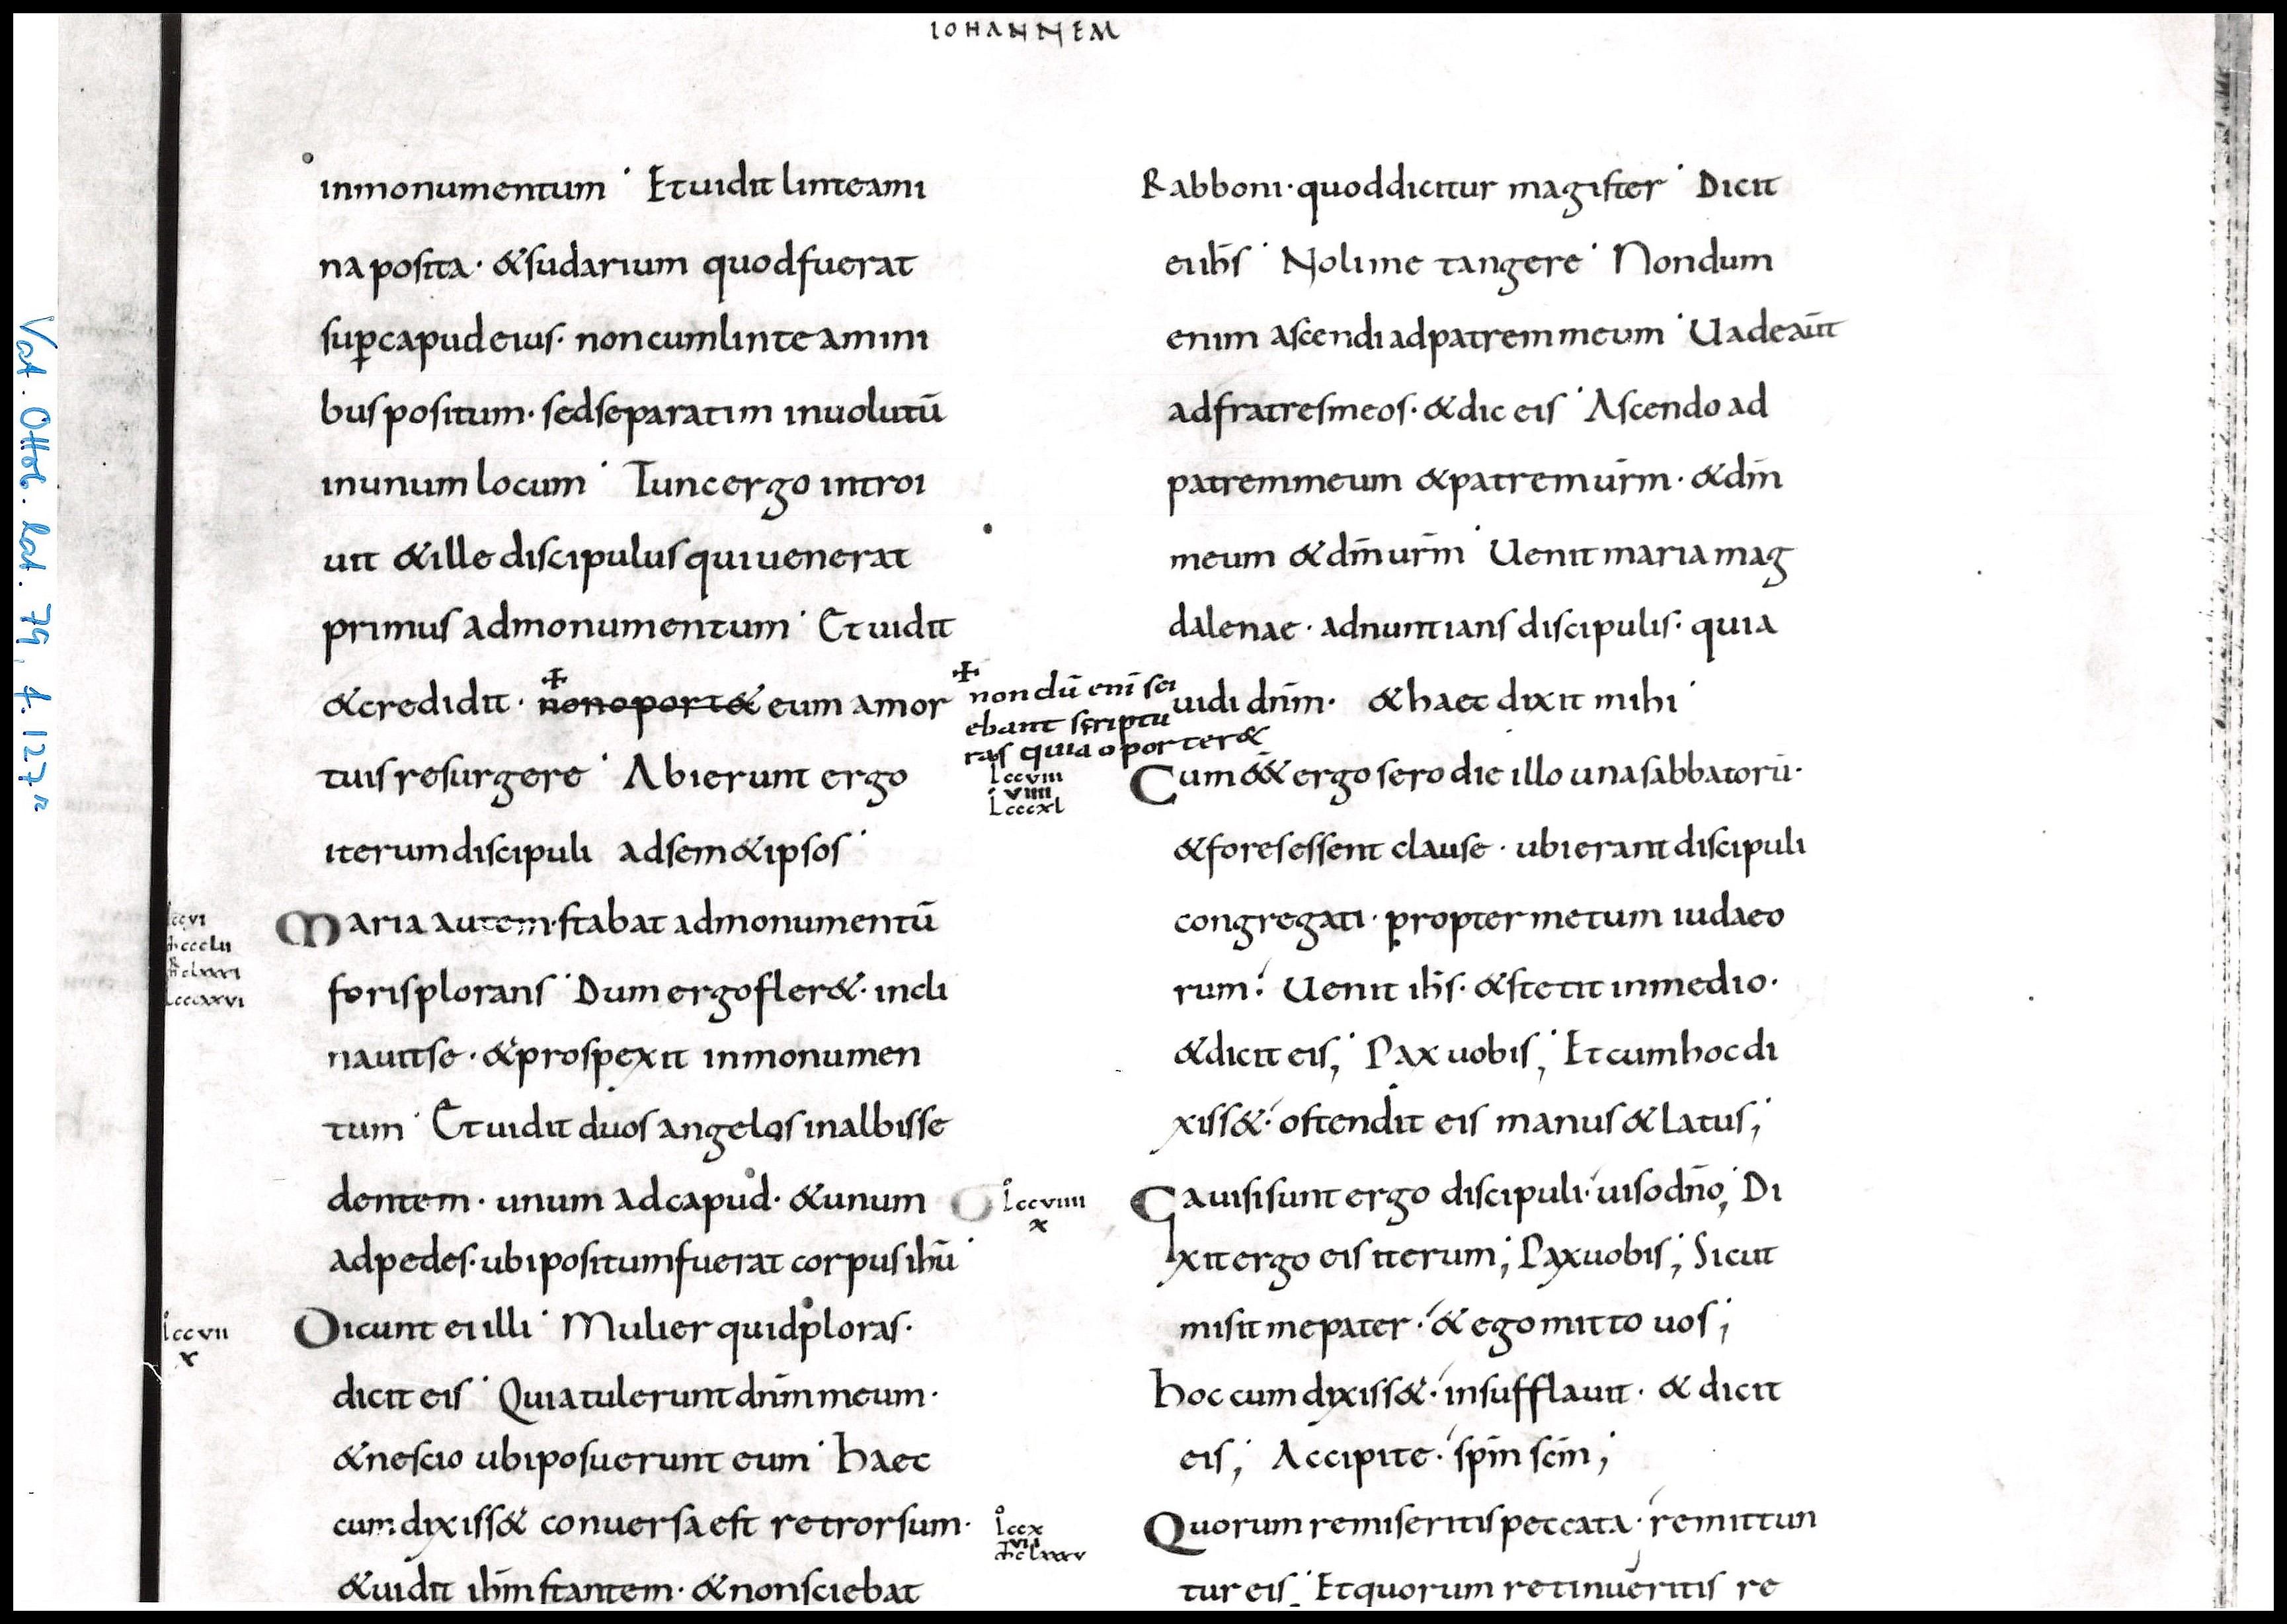 IOHANNEM
inmonumentum · Et uidit linteami
na posita · &sudarium quod fuerat
sup̱ capud eius · non cum linteamini
bus positum · sed separatim inuolutū
in unum locum · Tunc ergo introi
uit &ille discipulus qui uenerat
primus admonumentum · Et uidit
&credidit · ✝ nonoport& eum amor
tuis resurgere · Abierunt ergo
iterum discipuli adsem&ipsos ·
Maria autem · stabat admonumentū
foris plorans · Dum ergo fler& · incli
nauit se · &prospexit inmonumen
tum · Et uidit duos angelos inalbis se
dentem · unum adcapud · &unum
adpedes · ubi positum fuerat corpus ihū ·
Dicunt ei illi · Mulier quid ploras ·
dicit eis · Quia tulerunt dnm̄ meum ·
&nescio ubi posuerunt eum · haec
cum dyxiss& conuersa est retrorsum ·
&uidit ihm̄ stantem · &non sciebat
✝ non dū enī sci
ebant scriptu
ras quia oporter&
lccviii
viiii
lcccxl
lccviiii
x
lccx
vii
lccvii
x
Rabboni · quod dicitur magister · Dicit
ei ihs̄ · Noli me tangere · Nondum
enim ascendi ad patrem meum · Uade aūt
ad fratres meos · &dic eis · Ascendo ad
patrem meum &patrem ur̄m · &dm̄
meum &dm̄ ur̄m · Uenit maria mag
dalenae · adnuntians discipulis · quia
uidi dnm̄ · &haec dixit mihi ·
Cum &&ergo sero die illo una sabbatorū ·
&fores essent clause · ubi erant discipuli
congregati · propter metum iudaeo
rum · Uenit ihs̄ · &stetit inmedio ·
&dicit eis; Pax uobis; Et cum hoc di
xiss& · ostendit eis manus &latus;
Gauisi sunt ergo discipuli · uiso dn̄o; Di
xit ergo eis iterum; Pax uobis; Sicut
misit me pater · &ego mitto uos;
hoc cum dyxiss& · insufflauit · &dicit
eis; Accipite · spm̄ scm̄;
Quorum remiseritis peccata · remittun
tur eis; Et quorum retinueritis re
Vat. Ottob. lat. 79, f. 127r